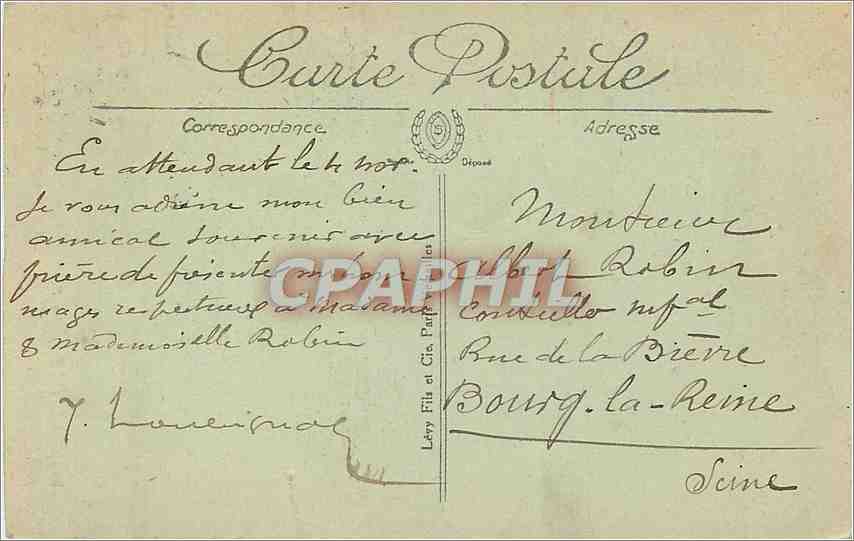 Carte Postale
Correspondance
Adresse
Déposé
En attendant le 4 nov.
Je vous adresse mon bien
amical souvenir avec
prière de présenter mes hom
mages respectueux à Madame
& Mademoiselle Robin
Monsieur
Albert Robin
Conseiller mpal
Rue de la Bièvre
Bourg-la-Reine
Seine
Lévy Fils et Cie, Paris
CPAPHIL